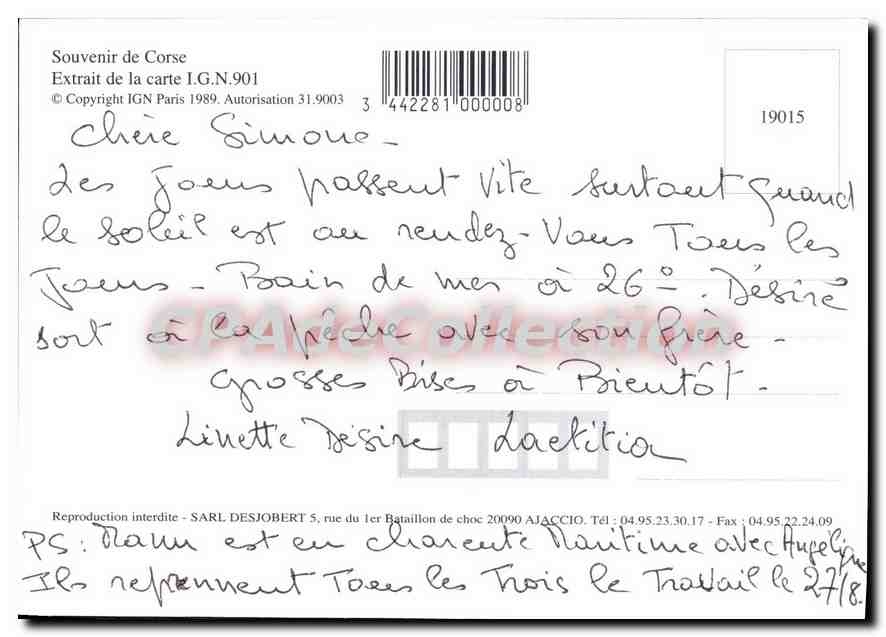 Souvenir de Corse
Extrait de la carte I.G.N.901
© Copyright IGN Paris 1989. Autorisation 31.9003
3 442281 000008
19015
Chère Simone -
Les Jours passent vite surtout quand
le soleil est au rendez-vous Tous les
Jours - Bain de mer à 26° . Désiré
sort à la pêche avec son frère -
grosses Bises à Bientôt -
Linette Désiré Laetitia
CPAdeCollection
Reproduction interdite - SARL DESJOBERT 5, rue du 1er Bataillon de choc 20090 AJACCIO. Tél : 04.95.23.30.17 - Fax : 04.95.22.24.09
PS : Manu est en charente Maritime avec Angélique
Ils reprennent Tous les Trois le Travail le 27/8.